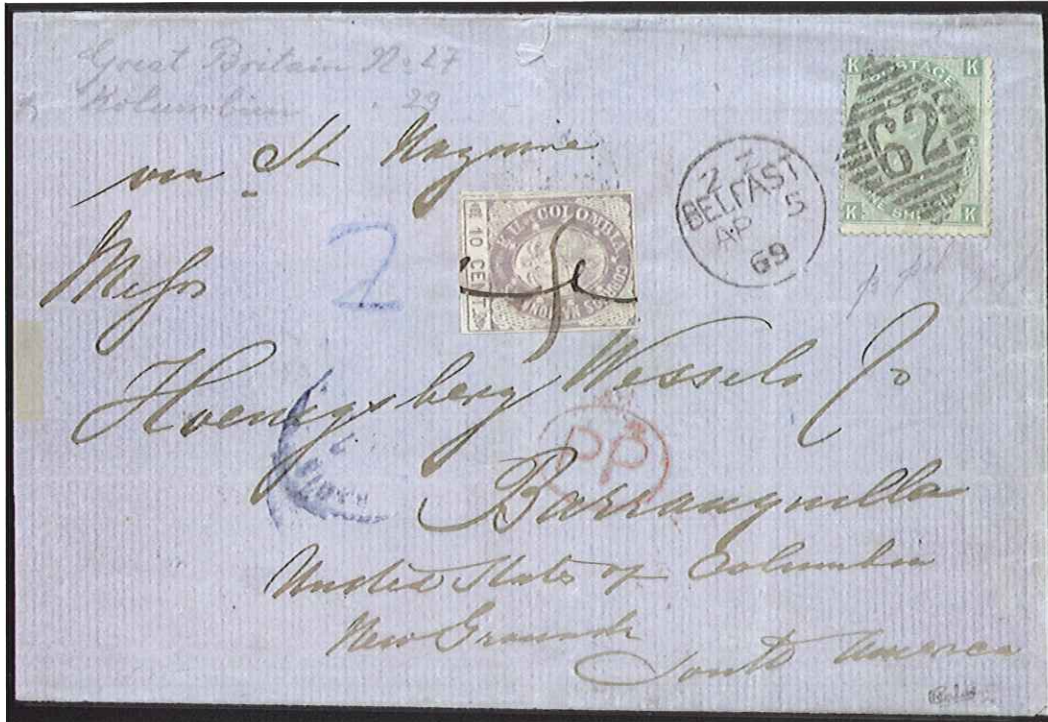 Great Britain No 27
Kolumbien 29
via St Nazaire
K POSTAGE K
62
K ONE SHILLING K
2 Z
BELFAST
AP 5
69
E.U. DE COLOMBIA
CORREOS NACIONALES
10 CENT
2
Messrs
Hoenigsberg Wessels Co
PP
Barranquilla
United States of Columbia
New Granada
South America